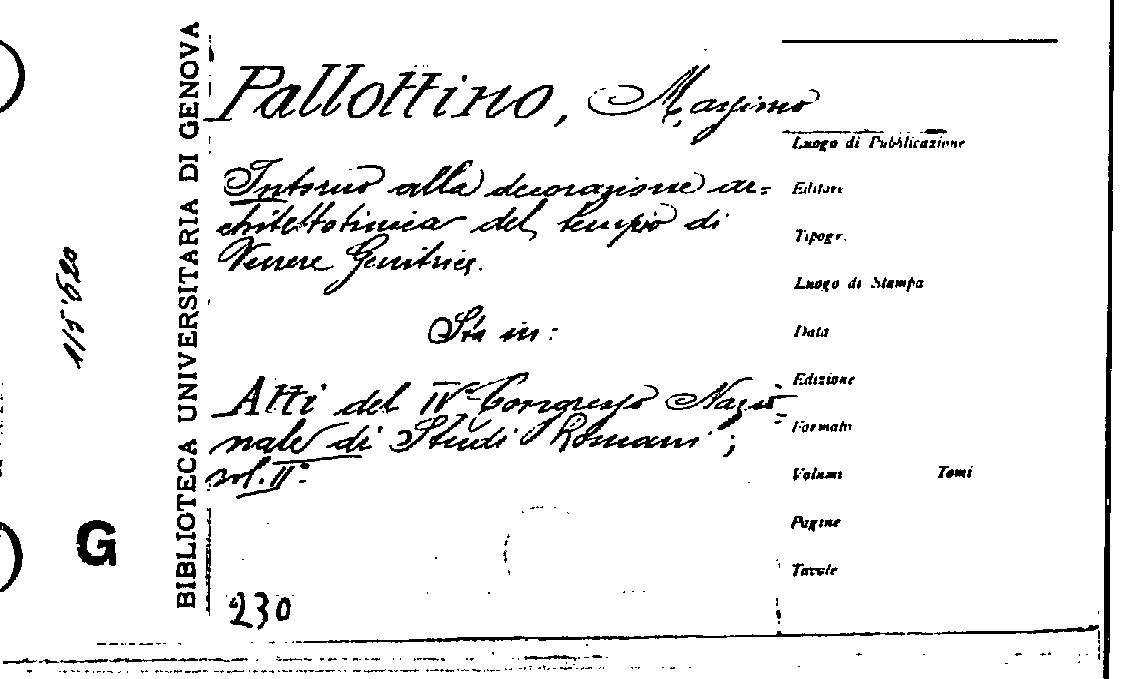 BIBLIOTECA UNIVERSITARIA DI GENOVA
115.620
G
Pallottino, Massimo
Intorno alla decorazione ar=
chitettonica del tempio di
Venere Genitrice.
Sta in:
Atti del IVº Congresso Nazio=
nale di Studi Romani;
vol. IIº.
230
Luogo di Pubblicazione
Editore
Tipogr.
Luogo di Stampa
Data
Edizione
Formato
Volumi Tomi
Pagine
Tavole